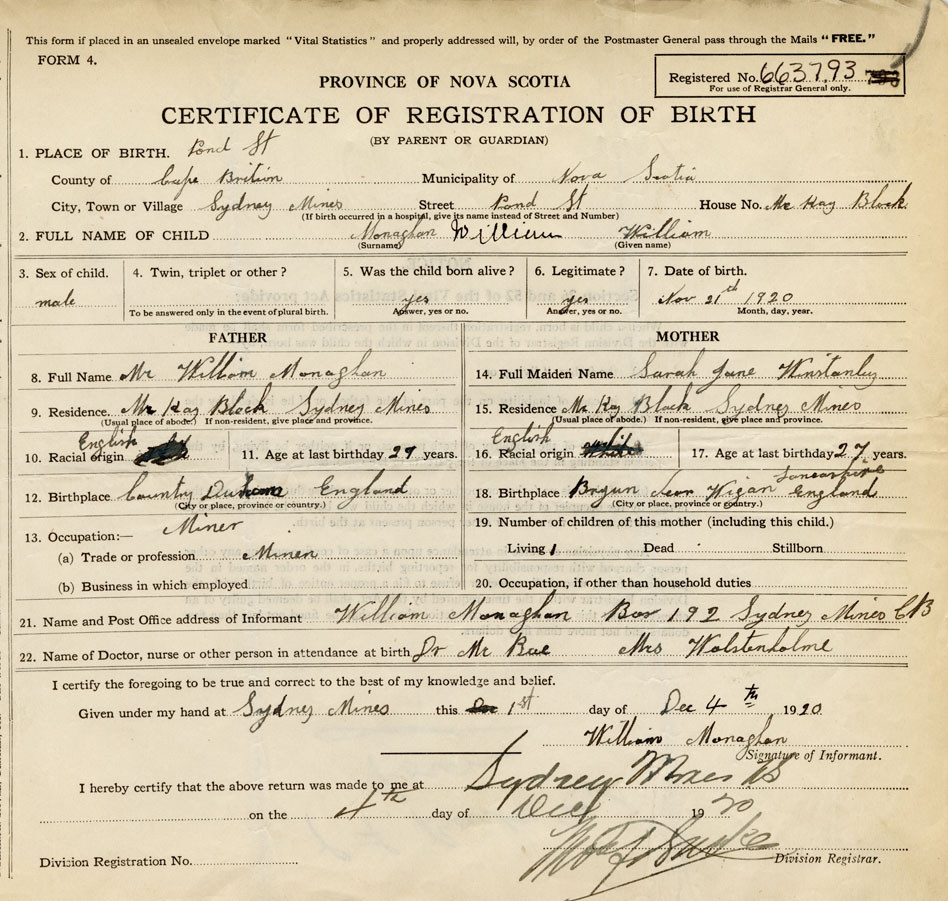 This form if placed in an unsealed envelope marked "Vital Statistics" and properly addressed will, by order of the Postmaster General pass through the Mails "FREE."
FORM 4.
PROVINCE OF NOVA SCOTIA
Registered No. 663793
For use of Registrar General only.
CERTIFICATE OF REGISTRATION OF BIRTH
(BY PARENT OR GUARDIAN)
1. PLACE OF BIRTH. Pond St
County of Cape Brition Municipality of Nova Scotia
City, Town or Village Sydney Mines Street Pond St House No. Mc Kay Block
(If birth occurred in a hospital, give its name instead of Street and Number)
2. FULL NAME OF CHILD Monaghan William William
(Surname) (Given name)
3. Sex of child. 4. Twin, triplet or other? 5. Was the child born alive? 6. Legitimate? 7. Date of birth.
male yes yes Nov 21th 1920
To be answered only in the event of plural birth. Answer, yes or no. Answer, yes or no. Month, day, year.
FATHER MOTHER
8. Full Name Mr William Monaghan 14. Full Maiden Name Sarah Jane Winstanley
9. Residence. Mc Kay Block Sydney Mines 15. Residence Mc Kay Block Sydney Mines
(Usual place of abode.) If non-resident, give place and province. (Usual place of abode.) If non-resident, give place and province.
10. Racial origin English 11. Age at last birthday 29 years. 16. Racial origin English White 17. Age at last birthday 27 years.
12. Birthplace Country England 18. Birthplace near Wigan Lancashire England
(City or place, province or country.) (City or place, province or country.)
13. Occupation:— Miner
19. Number of children of this mother (including this child.)
(a) Trade or profession Miner Living 1 Dead Stillborn
(b) Business in which employed 20. Occupation, if other than household duties
21. Name and Post Office address of Informant William Monaghan Box 192 Sydney Mines CB
22. Name of Doctor, nurse or other person in attendance at birth Dr Mc Mrs Wolstenholme
I certify the foregoing to be true and correct to the best of my knowledge and belief.
Given under my hand at Sydney Mines this 1st day of Dec 4th 1920
William Monaghan
Signature of Informant.
I hereby certify that the above return was made to me at Sydney Mines CB
on the 4th day of Dec 1920
Division Registration No. Division Registrar.